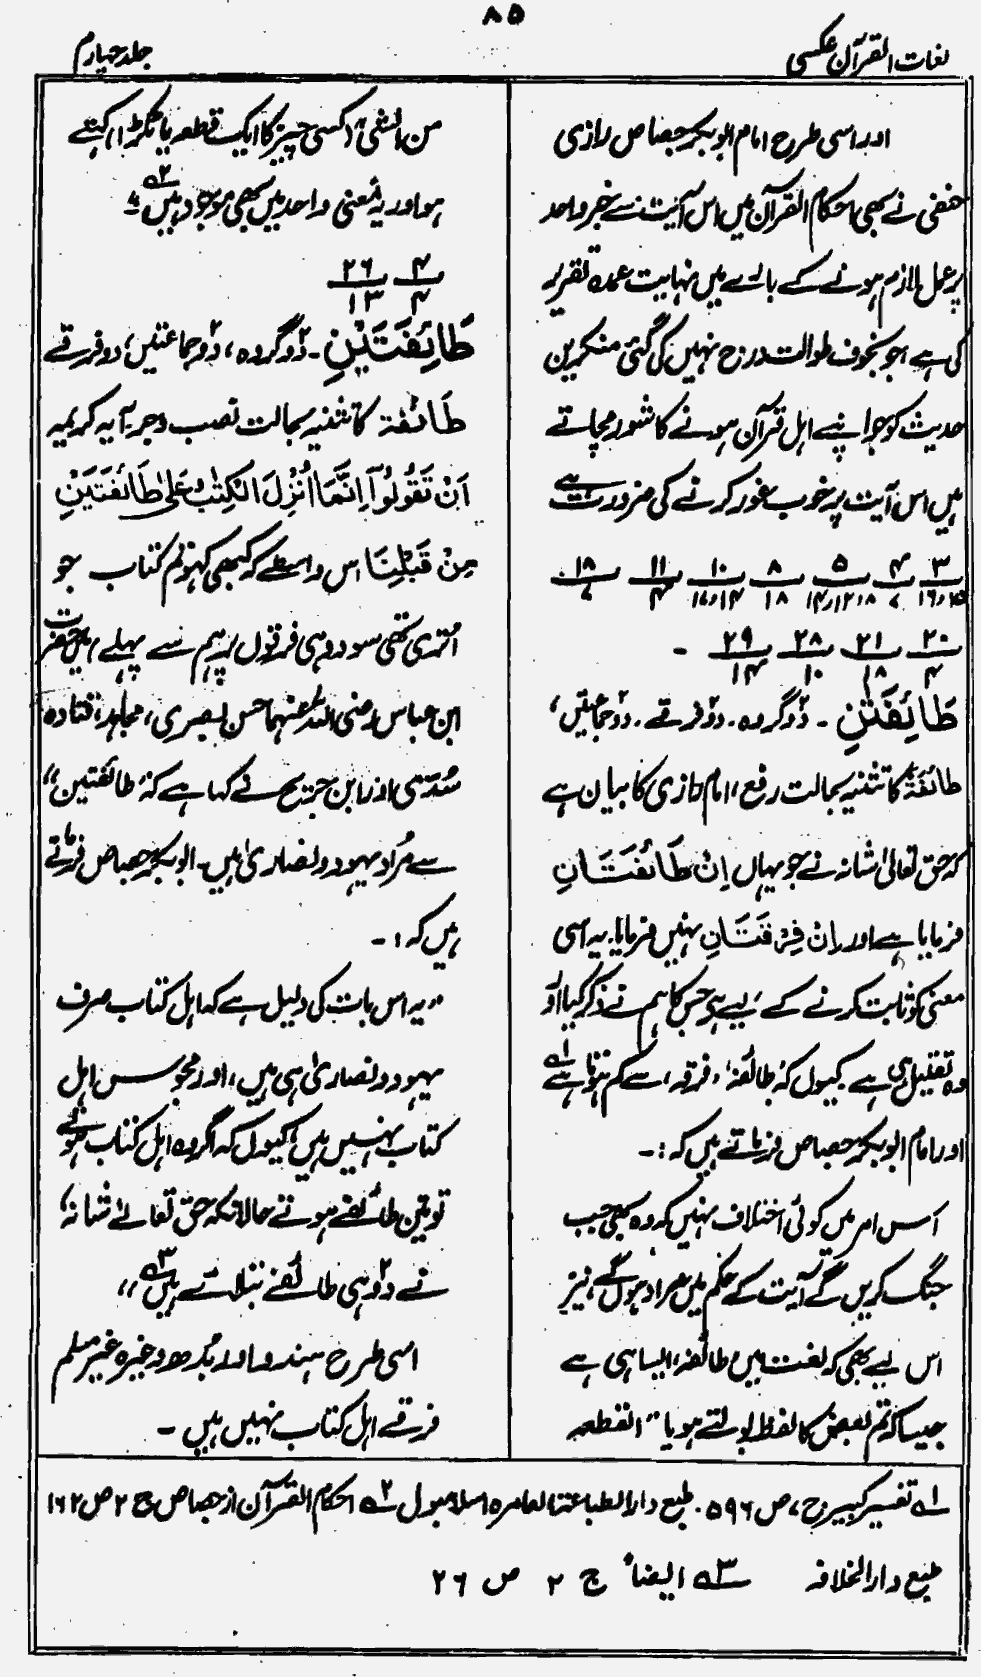 ۸۵
لغات القرآن عکسی
جلد چہارم
اور اسی طرح امام ابو بکر جصاص رازی
حنفی نے بھی احکام القرآن میں اس آیت سے خبر واحد
پر عمل لازم ہونے کے بارے میں نہایت عمدہ تقریر
کی ہے جو بخوف طوالت درج نہیں کی گئی منکرین
حدیث کو جو اپنے اہل قرآن ہونے کا شور مچاتے
ہیں اس آیت پر خوب غور کرنے کی ضرورت ہے
۳ ۴ ۵ ۸ ۱۰ ۱۱ ۱۸
۱۸ ۴
۲۰ ۲۱ ۲۸ ۲۹ ـ
۴ ۱۸ ۱۰ ۱۴
طَائِفَتٰنِ ۔ دو گروہ ۔ دو فرقے ۔ دو جماعتیں ،
طائفة کا تثنیہ بحالت رفع ، امام رازی کا بیان ہے
کہ حق تعالیٰ شانہ نے جو یہاں اِنْ طَائِفَتَانِ
فرمایا ہے اور اِنْ فِرْقَتَانِ نہیں فرمایا یہ اسی
معنی کو ثابت کرنے کے لیے ہے جس کا ہم نے ذکر کیا اور
وہ تقلیل ہی ہے کیوں کہ طائفہ ، فرقہ ، سے کم ہوتا ہے ۱؎
اور امام ابو بکر جصاص فرماتے ہیں کہ :۔
اس امر میں کوئی اختلاف نہیں کہ وہ بھی جب
جنگ کریں گے تو آیت کے حکم میں مراد ہوں گے نیز
اس لیے بھی کہ لغت میں طائفہ ، ایسا ہی ہے
جیسا کہ تم بعض کا لفظ بولتے ہو یا " القطعہ
من الشئ " ( کسی چیز کا ایک قطعہ یا ٹکڑا ) کہتے
ہو اور یہ معنی واحد میں بھی موجود ہیں ۲؎ "
۴ ۲۶
۴ ۱۳
طَائِفَتَيْنِ ۔ دو گروہ ، دو جماعتیں ، دو فرقے
طَائفة کا تثنیہ بحالت نصب و جر آیہ کریمہ
اَنْ تَقُولُوآ اِنَّمَا اُنْزِلَ الْكِتٰبُ عَلىٰ طَائفَتَيْنِ
مِنْ قَبْلِنَا اس واسطے کہ کبھی کہنے لگو تم کتاب جو
اتری تھی سو دو ہی فرقوں پر ہم سے پہلے ، میں حضرت
ابن عباس رضی اللہ عنہما حسن بصری ، مجاہد ، قتادہ
سُدّی اور ابن جریج نے کہا ہے کہ " طائفتین "
سے مراد یہود و نصاریٰ ہیں ۔ ابو بکر جصاص فرماتے
ہیں کہ :۔
" یہ اس بات کی دلیل ہے کہ اہل کتاب صرف
یہود و نصاریٰ ہی ہیں ، اور مجوس اہل
کتاب نہیں ہیں کیوں کہ اگر وہ اہل کتاب ہوتے
تو تین طائفے ہوتے حالانکہ حق تعالےٰ شانہ
نے دو ہی طائفے بتلائے ہیں ۳؎ "
اسی طرح ہندو اور بدھ وغیرہ غیر مسلم
فرقے اہل کتاب نہیں ہیں ۔
۱؎ تفسیر کبیر ج ، ص ۵۹۶ . طبع دار الطباعة العامرہ اسلامبول ۲؎ احکام القرآن از جصاص ج ۲ ص ۱۶۲
طبع دار الخلافہ ۳؎ ایضاً ج ۲ ص ۲۶